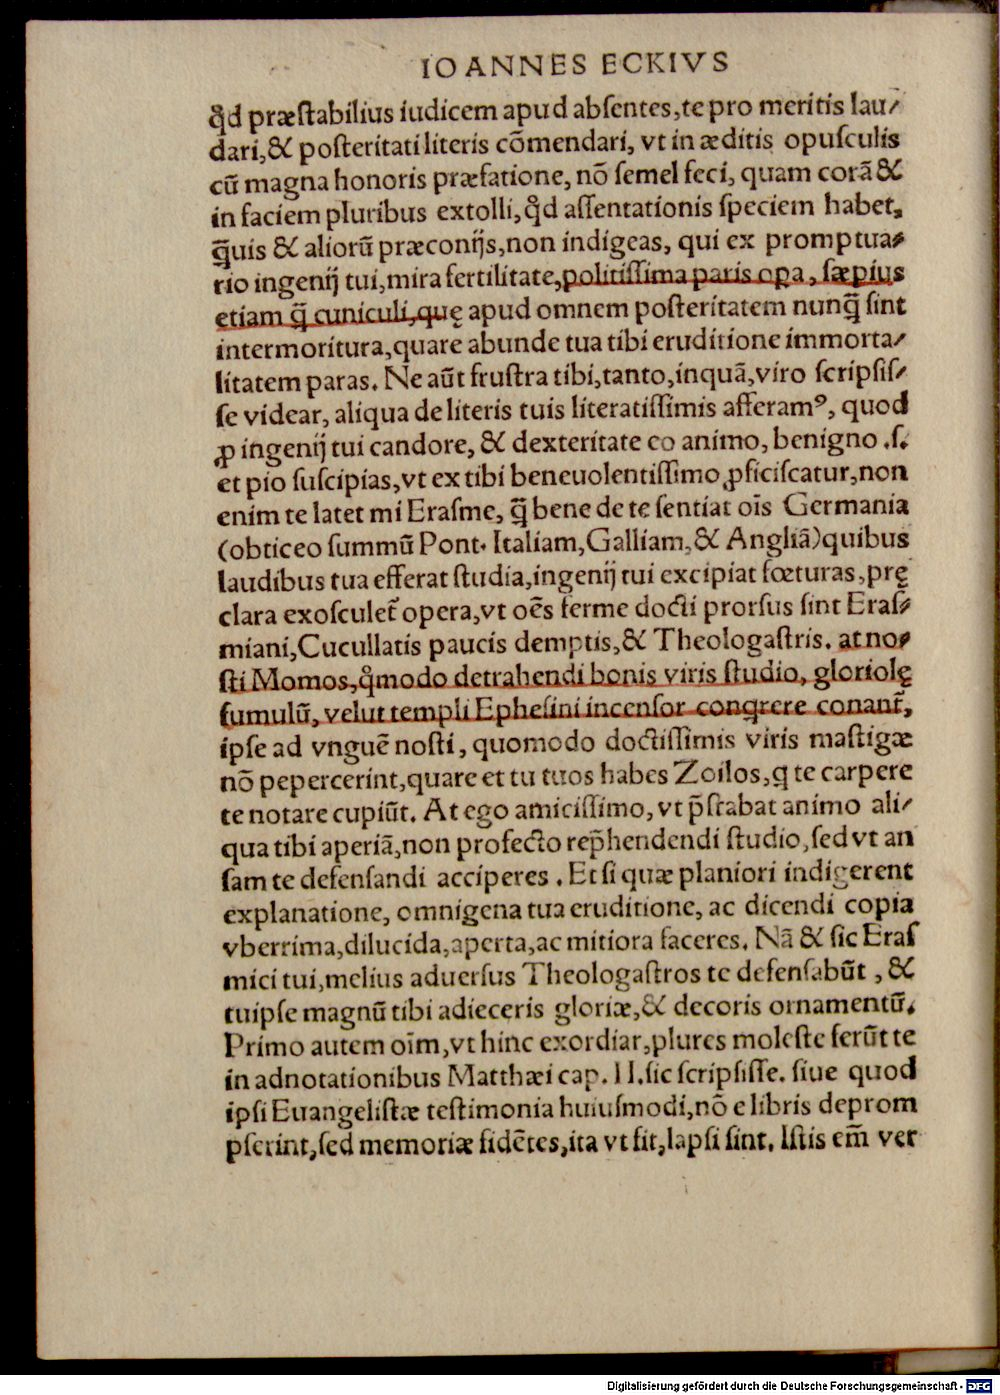 IOANNES ECKIVS
qd̛ præstabilius iudicem apud absentes, te pro meritis lau/
dari, & posteritati literis cōmendari, vt in æditis opusculis
cū magna honoris præfatione, nō semel feci, quam corā &
in faciem pluribus extolli, qd̛ assentationis speciem habet,
q̄uis & aliorū præconijs, non indigeas, qui ex promptua/
rio ingenij tui, mira fertilitate, politissima paris oꝑa, sæpius
etiam q̄ cuniculi, quę apud omnem posteritatem nunq̄ sint
intermoritura, quare abunde tua tibi eruditione immorta/
litatem paras. Ne aūt frustra tibi, tanto, inquā, viro scripsis/
se videar, aliqua de literis tuis literatissimis afferamꝰ, quod
ꝓ ingenij tui candore, & dexteritate eo animo, benigno .s.
et pio suscipias, vt ex tibi beneuolentissimo ꝓficiscatur, non
enim te latet mi Erasme, q̄ bene de te sentiat oīs Germania
(obticeo summū Pont. Italiam, Galliam, & Angliā) quibus
laudibus tua efferat studia, ingenij tui excipiat fœturas, prę
clara exosculet̄ opera, vt oēs ferme docti prorsus sint Eras/
miani, Cucullatis paucis demptis, & Theologastris. at no/
sti Momos, qͦmodo detrahendi bonis viris studio, gloriolę
fumulū, velut templi Ephesini incensor conqrere conant̄,
ipse ad vnguē nosti, quomodo doctissimis viris mastigæ
nō pepercerint, quare et tu tuos habes Zoilos, q te carpere
te notare cupiūt. At ego amicissimo, vt p̄stabat animo ali/
qua tibi aperiā, non profecto rep̄hendendi studio, sed vt an
sam te defensandi acciperes. Et si quæ planiori indigerent
explanatione, omnigena tua eruditione, ac dicendi copia
vberrima, dilucida, aperta, ac mitiora faceres. Nā & sic Eras
mici tui, melius aduersus Theologastros te defensabūt, &
tuipse magnū tibi adieceris gloriæ, & decoris ornamentū.
Primo autem oīm, vt hinc exordiar, plures moleste ferūt te
in adnotationibus Matthæi cap. II. sic scripsisse. siue quod
ipsi Euangelistæ testimonia huiusmodi, nō e libris deprom
pserint, sed memoriæ fidētes, ita vt fit, lapsi sint. Istis em̄ ver
Digitalisierung gefördert durch die Deutsche Forschungsgemeinschaft - DFG